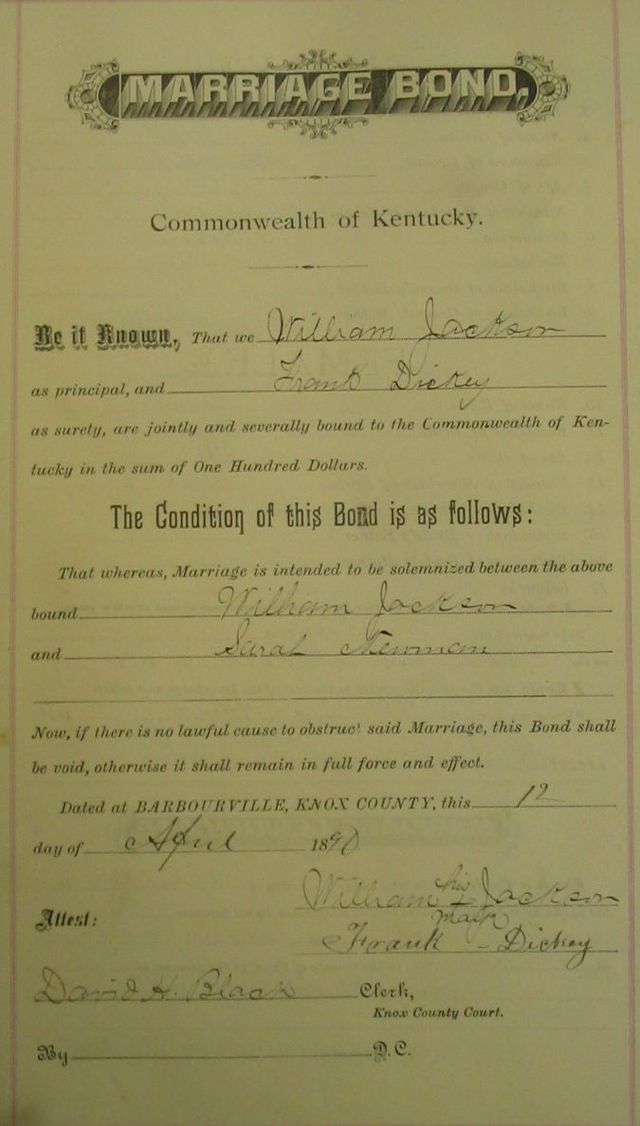 MARRIAGE BOND.
Commonwealth of Kentucky.
Be it Known, That we William Jackson
as principal, and Frank Dickey
as surety, are jointly and severally bound to the Commonwealth of Ken-
tucky in the sum of One Hundred Dollars.
The Condition of this Bond is as follows:
That whereas, Marriage is intended to be solemnized between the above
bound William Jackson
and Sarah Newman
Now, if there is no lawful cause to obstruct said Marriage, this Bond shall
be void, otherwise it shall remain in full force and effect.
Dated at BARBOURVILLE, KNOX COUNTY, this 12
day of April 1890
his
William Jackson
mark
Attest:
Frank Dickey
David H. Black Clerk,
Knox County Court.
By D.C.